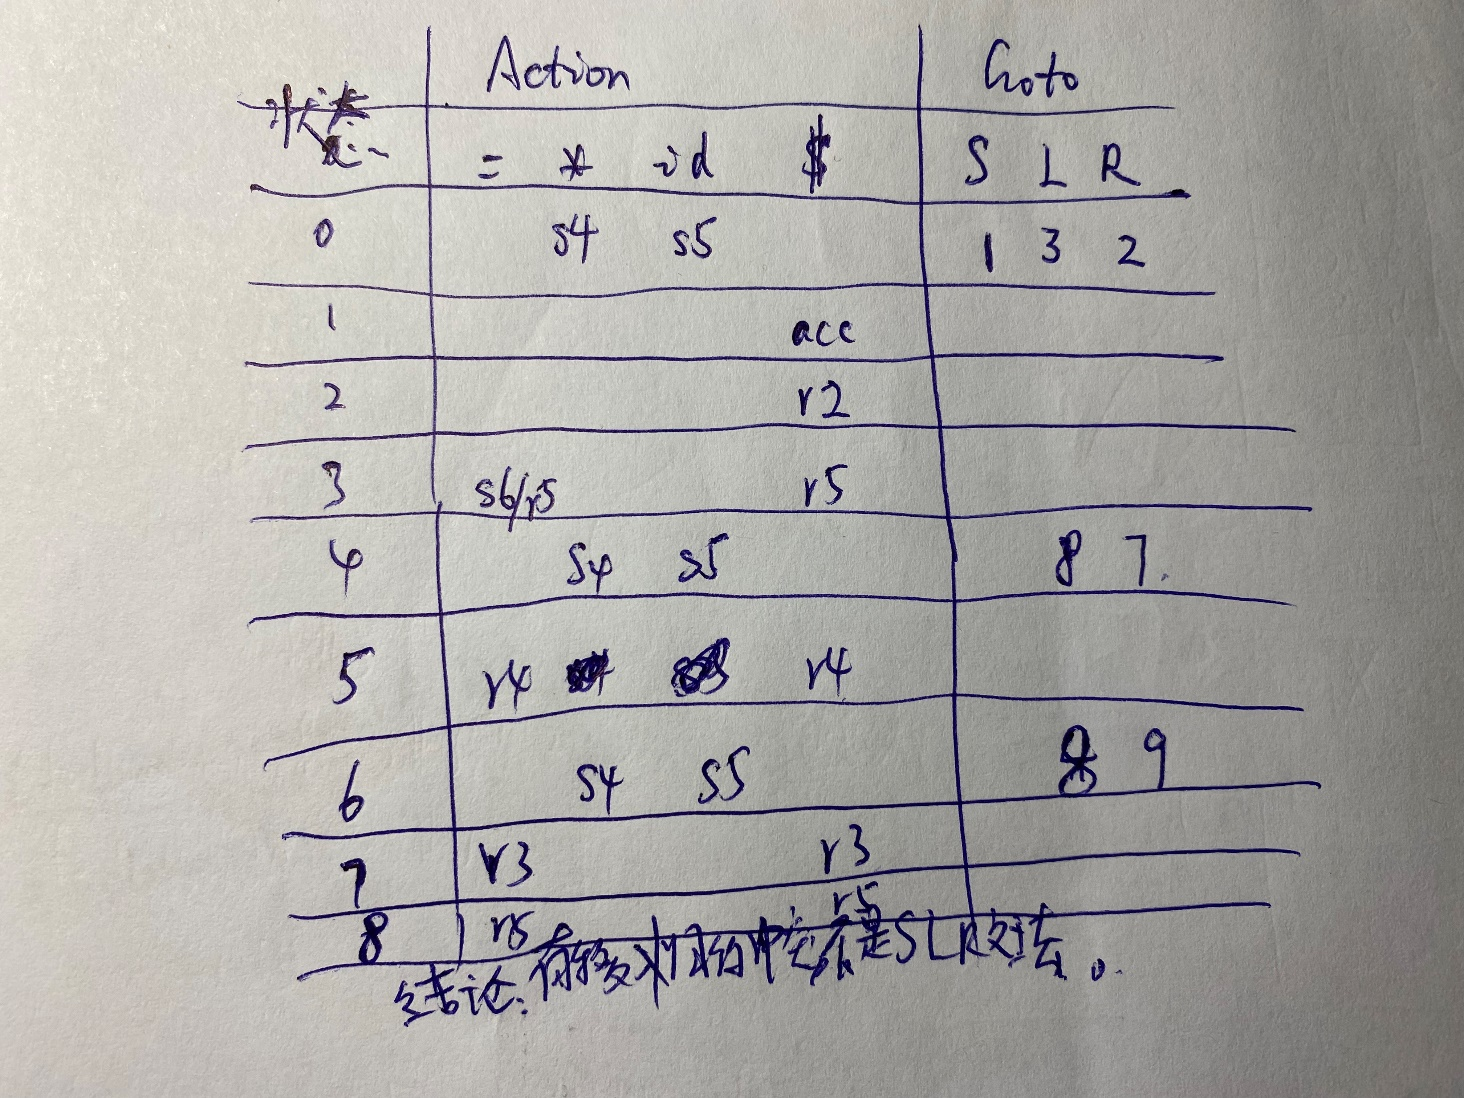 Action Goto
状态 = * id $ S L R
0 s4 s5 1 3 2
1 acc
2 r2
3 s6/r5 r5
4 s4 s5 8 7.
5 r4 r4
6 s4 s5 8 9
7 r3 r3
8 r5 r5
结论:有移入归约冲突不是SLR文法。